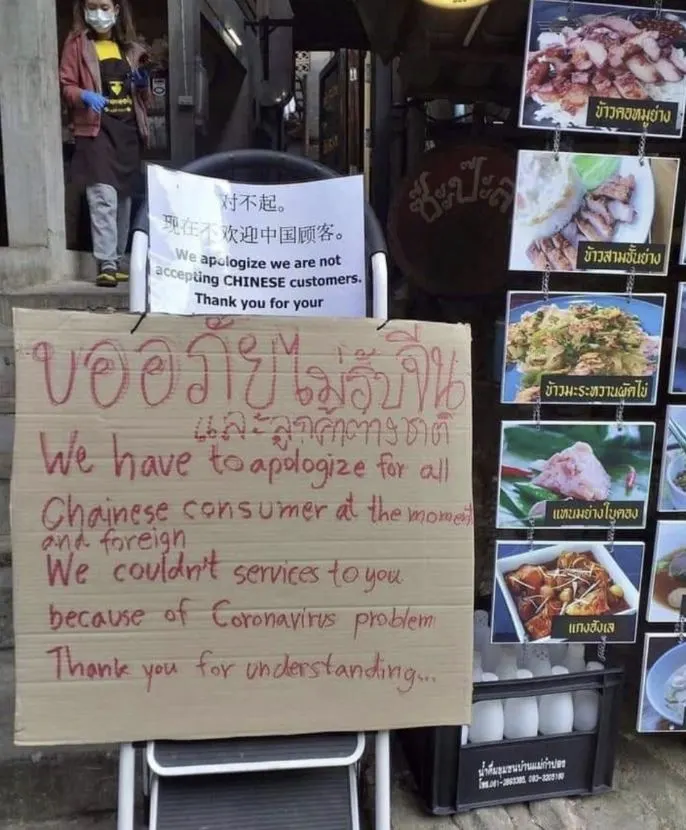 对不起。
现在不欢迎中国顾客。
We apologize we are not
accepting CHINESE customers.
Thank you for your
ขออภัยไม่รับจีน
และลูกค้าต่างชาติ
We have to apologize for all
Chainese consumer at the moment
and foreign
We couldn't services to you
because of Coronavirus problem
Thank you for understanding...
ข้าวคอหมูย่าง
ข้าวสามชั้นย่าง
ข้าวมะระหวานผัดไข่
แหนมย่างใบตอง
แกงฮังเล
น้ำดื่มชุมชนบ้านแม่กำปอง